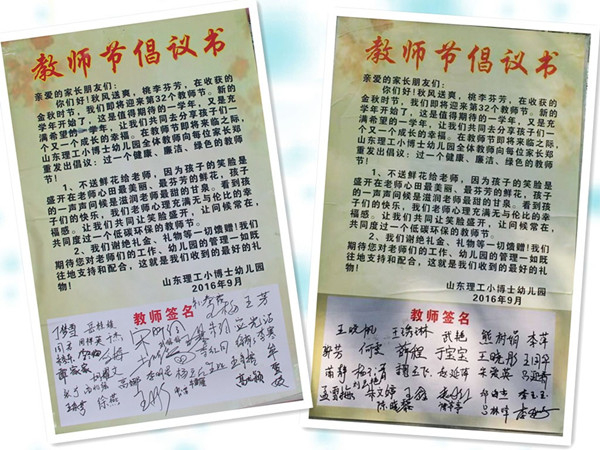 教师节倡议书
亲爱的家长朋友们：
你们好！秋风送爽，桃李芬芳，在收获的
金秋时节，我们即将迎来第32个教师节。新的
学年开始了，这是值得期待的一学年，又是充
满希望的一学年，让我们共同去分享孩子们一
个又一个成长的幸福。在教师节即将来临之际，
山东理工小博士幼儿园全体教师向每位家长郑
重发出倡议：过一个健康、廉洁、绿色的教师
节！
1、不送鲜花给老师，因为孩子的笑脸是
盛开在老师心田最美丽、最芬芳的鲜花，孩子
的一声声问候是滋润老师最甜的甘泉。看到孩
子们的快乐，我们老师心理充满无与伦比的幸
福感。让我们共同让笑脸盛开，让问候常在，
共同度过一个低碳环保的教师节。
2、我们谢绝礼金、礼物等一切馈赠！我们
期待您对老师们的工作、幼儿园的管理一如既
往地支持和配合，这就是我们收到的最好的礼
物！
山东理工小博士幼儿园
2016年9月
教师签名
教师节倡议书
亲爱的家长朋友们：
你们好！秋风送爽，桃李芬芳，在收获的
金秋时节，我们即将迎来第32个教师节。新的
学年开始了，这是值得期待的一学年，又是充
满希望的一学年，让我们共同去分享孩子们一
个又一个成长的幸福。在教师节即将来临之际，
山东理工小博士幼儿园全体教师向每位家长郑
重发出倡议：过一个健康、廉洁、绿色的教师
节！
1、不送鲜花给老师，因为孩子的笑脸是
盛开在老师心田最美丽、最芬芳的鲜花，孩子
的一声声问候是滋润老师最甜的甘泉。看到孩
子们的快乐，我们老师心理充满无与伦比的幸
福感。让我们共同让笑脸盛开，让问候常在，
共同度过一个低碳环保的教师节。
2、我们谢绝礼金、礼物等一切馈赠！我们
期待您对老师们的工作、幼儿园的管理一如既
往地支持和配合，这就是我们收到的最好的礼
物！
山东理工小博士幼儿园
2016年9月
教师签名
王晓帆 武艳 熊树娟 李萍
于宝宝 王晓彤
赵延萍